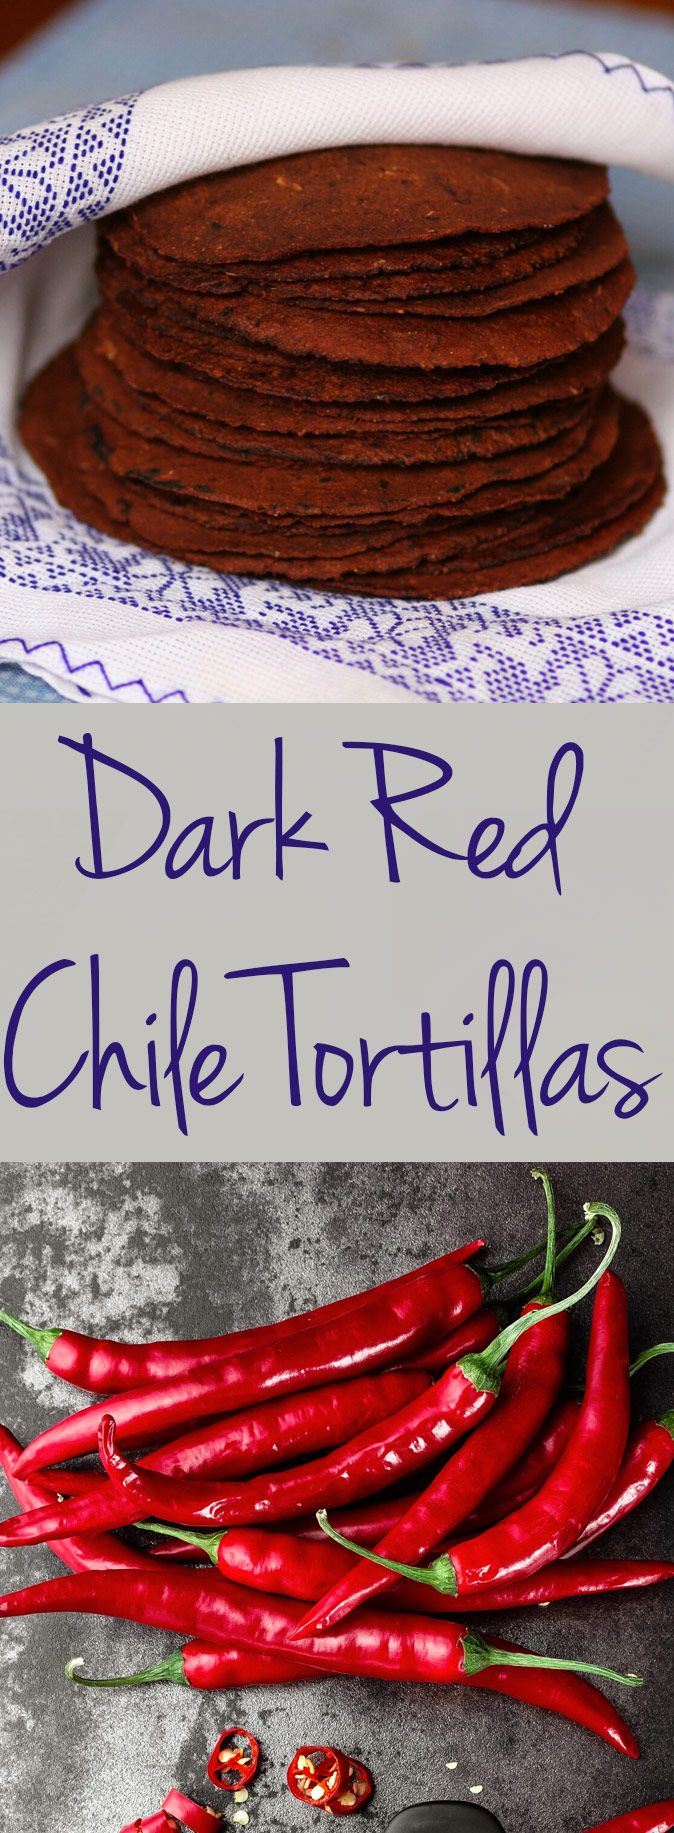 Dark Red
Chile Tortillas